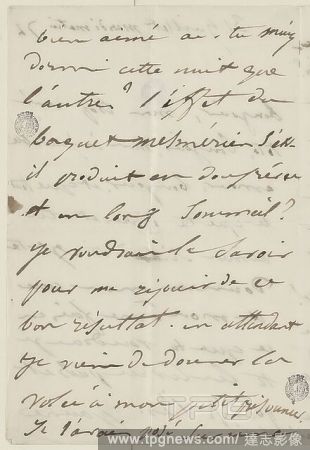 bien aimé as-tu mieux
dormi cette nuit que
l'autre? l'effet du
bouquet mesmérien s'est
il produit en doux rêve
et en long sommeil?
je voudrais le savoir
pour me réjouir de ce
bon résultat. en attendant
je viens de donner la
volée à mon petit prisonnier.
Je l'avais
www.tpgnews.com 達志影像